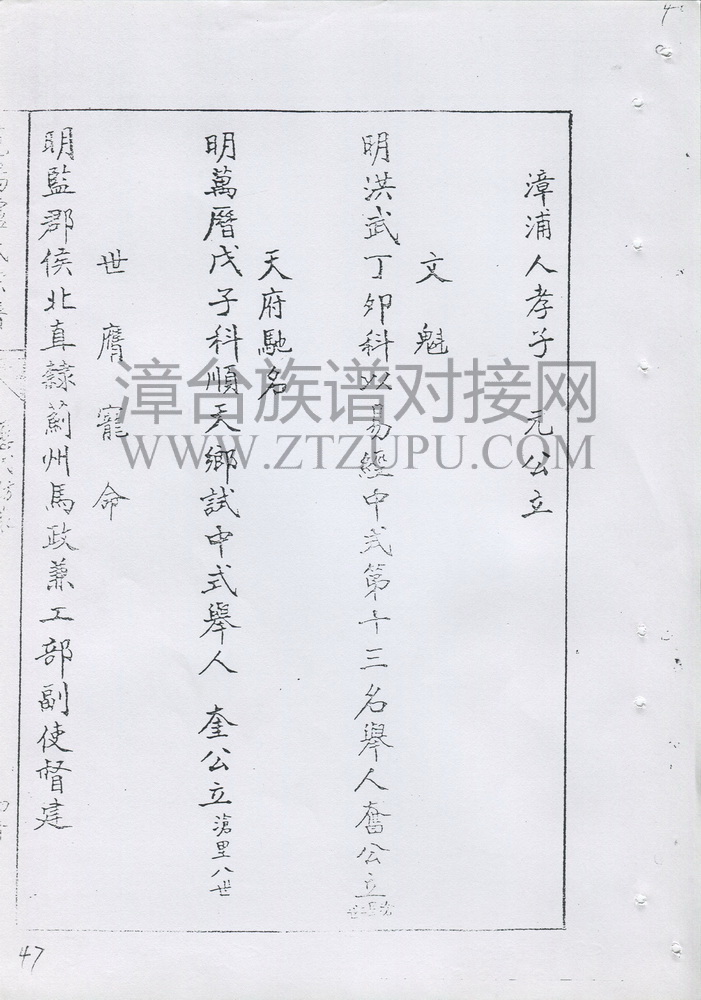 漳浦人孝子 元公立
文魁
明洪武丁卯科以易經中式第十三名舉人奮公立
天府馳名
明萬曆戊子科順天鄉試中式舉人 奎公立 滄里八世
世膺寵命
明監郡侯北直隸薊州馬政兼工部副使督建
漳台族谱对接网
WWW.ZTZUPU.COM
47